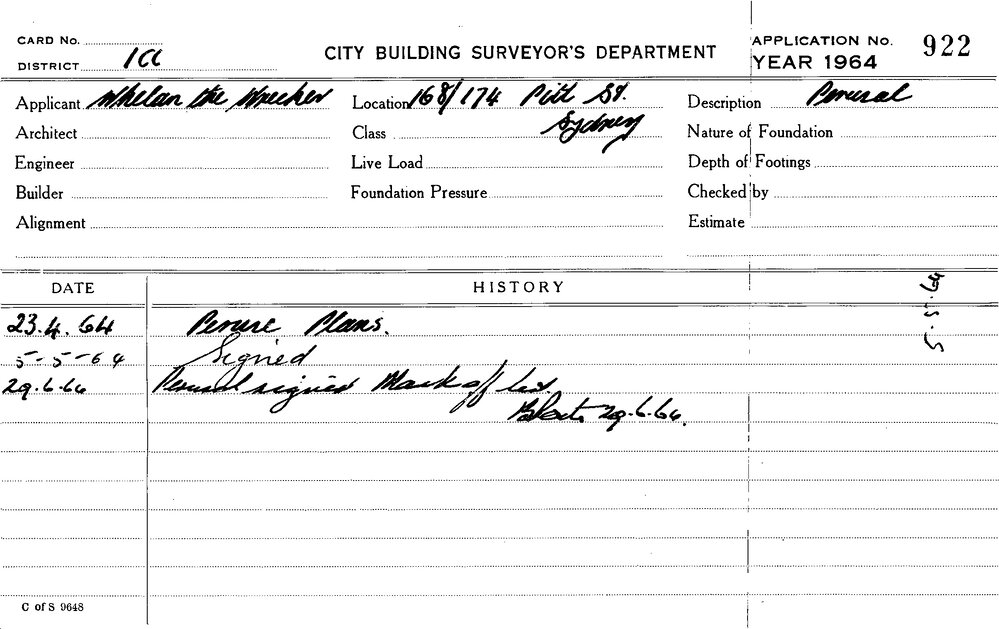 CARD No.
DISTRICT 1a
CITY BUILDING SURVEYOR'S DEPARTMENT
APPLICATION No. 922
YEAR 1964
Applicant Whelan the Wrecker
Location 168/174 Pitt St. Sydney
Description Perusal
Architect
Class
Nature of Foundation
Engineer
Live Load
Depth of Footings
Builder
Foundation Pressure
Checked by
Alignment
Estimate
DATE HISTORY
5.5.64
23.4.64 Peruse Plans.
5-5-64 Signed
29.6.64 Perusal signed Mark off
29.6.64.
C of S 9648